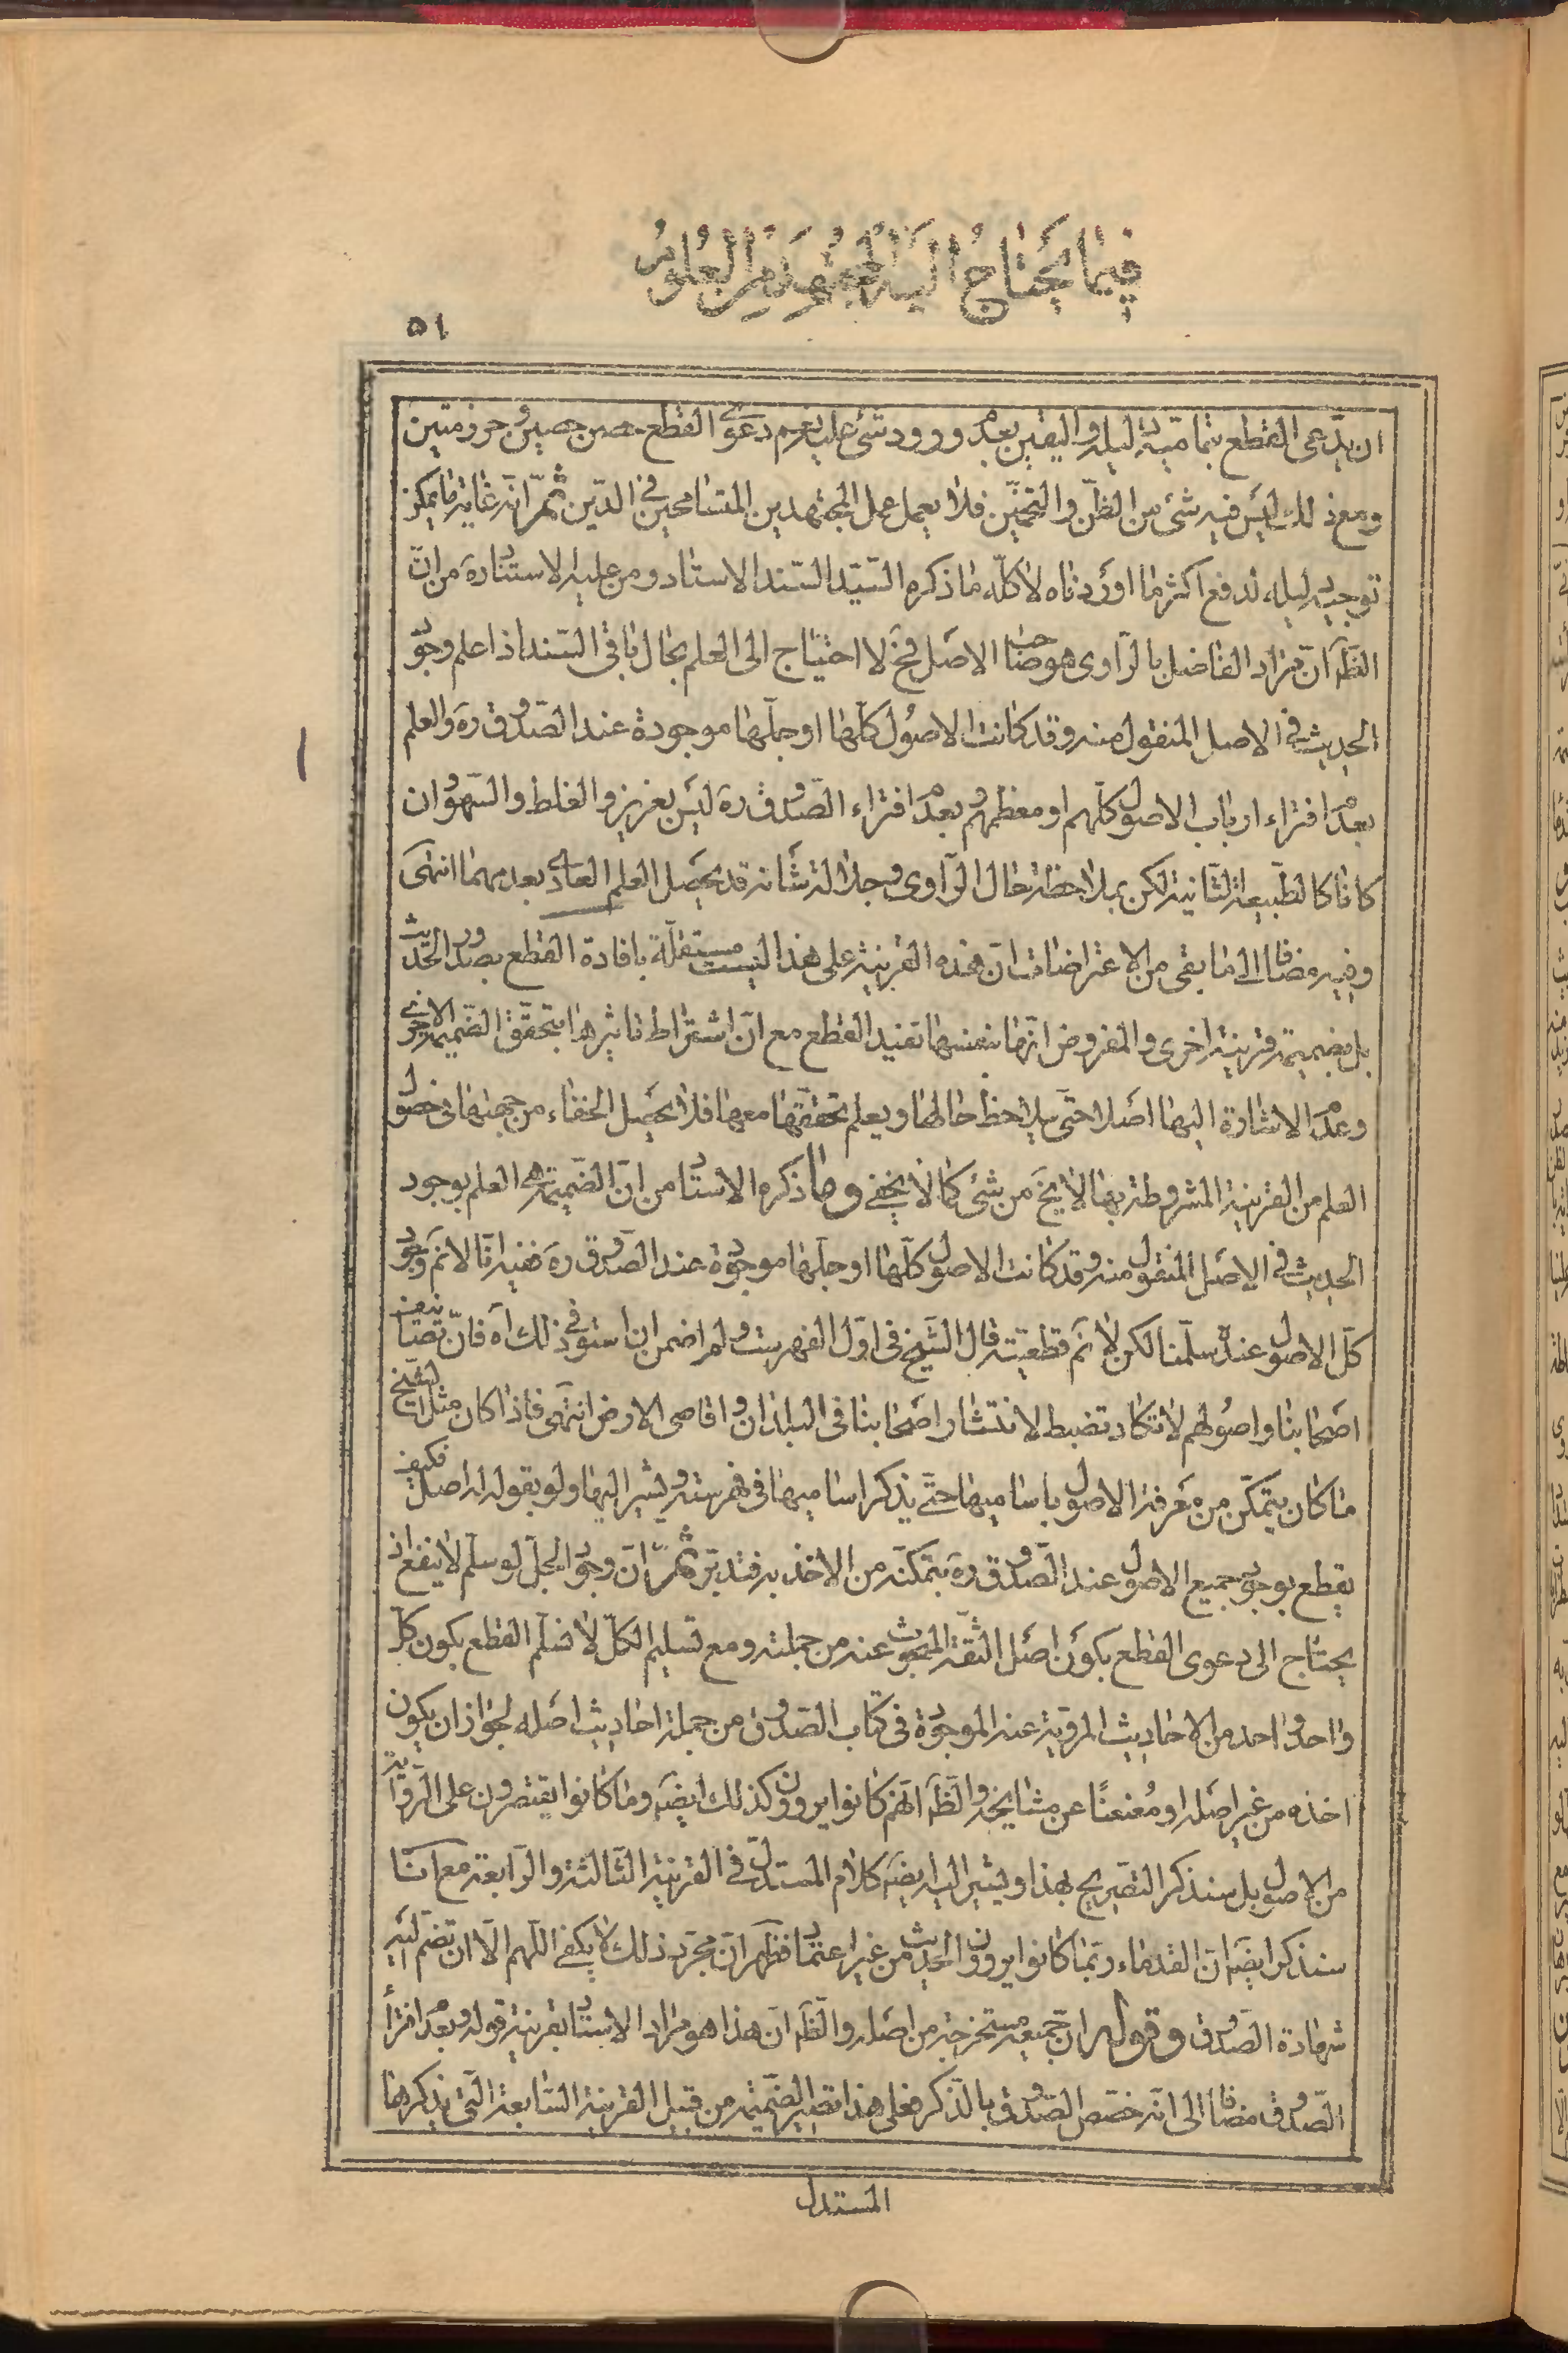 فيما يحتاج اليه المجتهد من العلوم
٥١
ان يدّعى القطع بتماميّة دليله واليقين بعدم ورود شئ عليه نعم دعوى القطع حصن حصين وحرز متين
ومع ذلك ليس فيه شئ من الظنّ والتخمين فلا يعمل عمل المجتهدين المتسامحين في الدّين ثمّ انّه غاية ما يمكن
توجيه دليله ليدفع اكثر ما اوردناه لا كلّه ما ذكره السّيد السّند الاستاد ومن عليه الاستناد ره من انّ
الظّ انّ مراد الفاضل بالراوى هو صاحب الاصل فح لا احتياج الى العلم بحال باقى السّند اذا علم وجود
الحديث في الاصل المنقول منه وقد كانت الاصول كلّها او جلّها موجودة عند الصّدوق ره والعلم
بعدم افتراء ارباب الاصول كلّهم او معظمهم وبعدم افتراء الصّدوق ره ليس بعزيز والغلط والسّهو وان
كانا كالطّبيعة الثّانية لكن بملاحظة حال الرّاوى وجلالة شانه قد يحصل العلم العادى بعدمهما انتهى
وفيه مضافا الى ما بقى من الاعتراضات انّ هذه القرينة على هذا ليست مستقلّة بافادة القطع بصدور الحديث
بل بضميمة قرينة اخرى والمفروض انّها بنفسها تفيد القطع مع انّ اشتراط تاثيرها بتحقّق الضّميمة الاخرى
وعدم الاشارة اليها اصلا حتّى يلاحظ حالها ويعلم تحقّقها معها فلا يحصل الخفاء من جهتها في حصول
العلم من القرينة المشروطة بها لا يخ من شئ كما لا يخفى وما ذكره الاستاد من انّ الضّميمة هى العلم بوجود
الحديث في الاصل المنقول منه وقد كانت الاصول كلّها او جلّها موجودة عند الصّدوق ره ففيه انّا لا نم وجود
كلّ الاصول عنده سلّمنا لكن لا نم قطعيّته قال الشّيخ في اوّل الفهرست ولم اضمن ان استوفى ذلك اه فانّ تصانيف
اصحابنا واصولهم لا تكاد تضبط لانتشار اصحابنا في البلدان واقاصى الارض انتهى فاذا كان مثل الشّيخ
ما كان يتمكّن من معرفة الاصول باساميها حتّى يذكر اساميها في فهرسته ويشير اليها ولو بقوله له اصل فكيف
يقطع بوجود جميع الاصول عند الصّدوق ره بتمكنه من الاخذ به فتدبّر ثمّ انّ وجود الجلّ لو سلّم لا ينفع اذ
يحتاج الى دعوى القطع بكون اصل الثّقة المبحوث عنه من جملته ومع تسليم الكلّ لا نسلّم القطع بكون كلّ
واحد واحد من الاحاديث المرويّة عنه الموجودة في كتاب الصّدوق من جملة احاديث اصله لجواز ان يكون
اخذه من غير اصله او مُعنعنًا عن مشايخه والظّ انّهم كانوا يروون كذلك ايضَ وما كانوا يقتصرون على الرّواية
من الاصول بل سنذكر التّصريح بهذا ويشير اليه ايضَ كلام المستدلّ في القرينة الثّالثة والرّابعة مع انّا
سنذكر ايضَ انّ القدماء ربّما كانوا يروون الحديث من غير اعتماد فظهر انّ مجرّد ذلك لا يكفى اللّهمّ الّا ان تضمّ اليه
شهادة الصّدوق وقوله انّ جميعه مستخرجة من اصله والظّ انّ هذا هو مراد الاستاد بقرينة قوله وبعدم افتراء
الصّدوق مضافا الى انّه خصّص الصّدوق بالذّكر فعلى هذا تصير الضّميمة من قبيل القرينة السّابعة الّتى يذكرها
المستدلّ